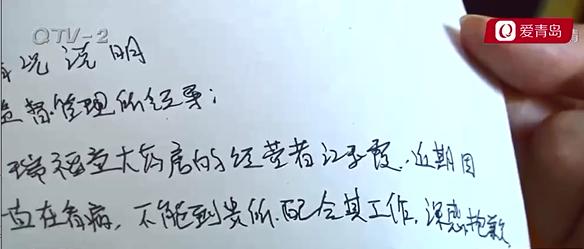 QTV-2
爱青岛
情况说明
监督管理所经办:
瑞福堂大药房的经营者江子霞.近期因
直在看病,不能到贵所.配合其工作,深感抱歉